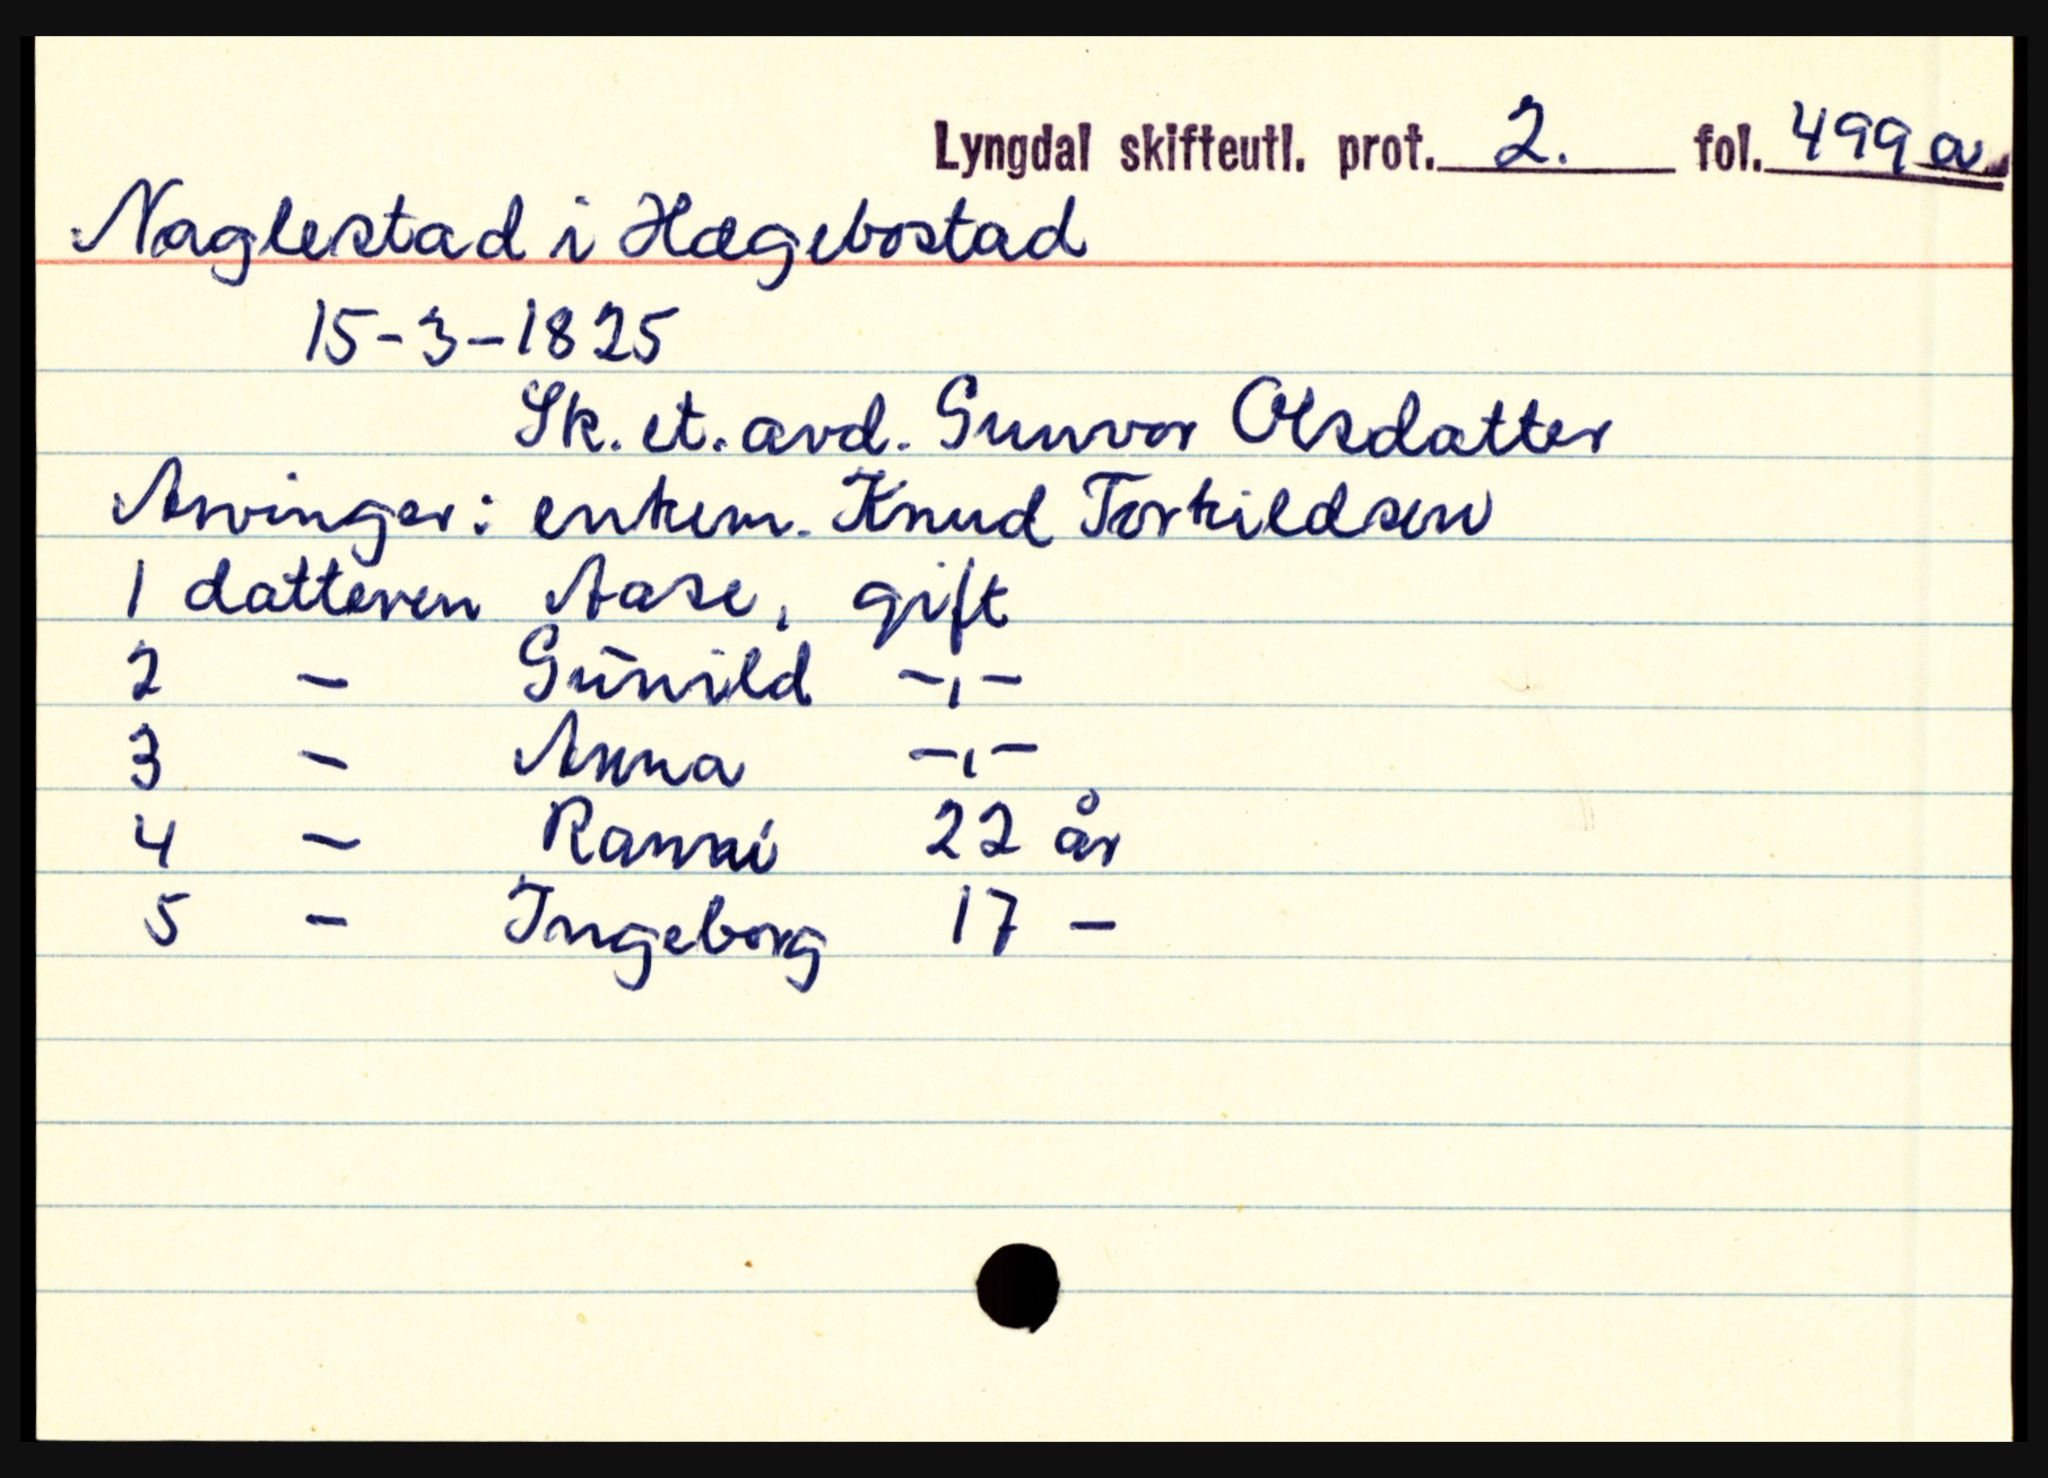 Lyngdal skifteutl. prot. 2. fol. 499a
Naglestad i Hægebostad
15-3-1825
Sk. et. avd. Gunvor Olsdatter
Arvinger: enkem. Knud Torkildsen
1 datteren Aase, gift
2 - Gunild -,-
3 - Anna -,-
4 - Ranni 22 år
5 - Ingeborg 17 -